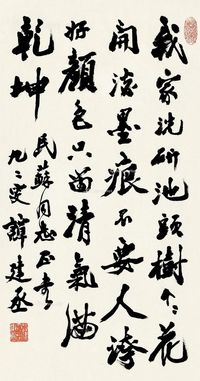 我家洗研池頭樹个个花
開淡墨痕不要人誇
好顏色只留清氣滿
乾坤
民蘇同志正
九二叟譚建丞